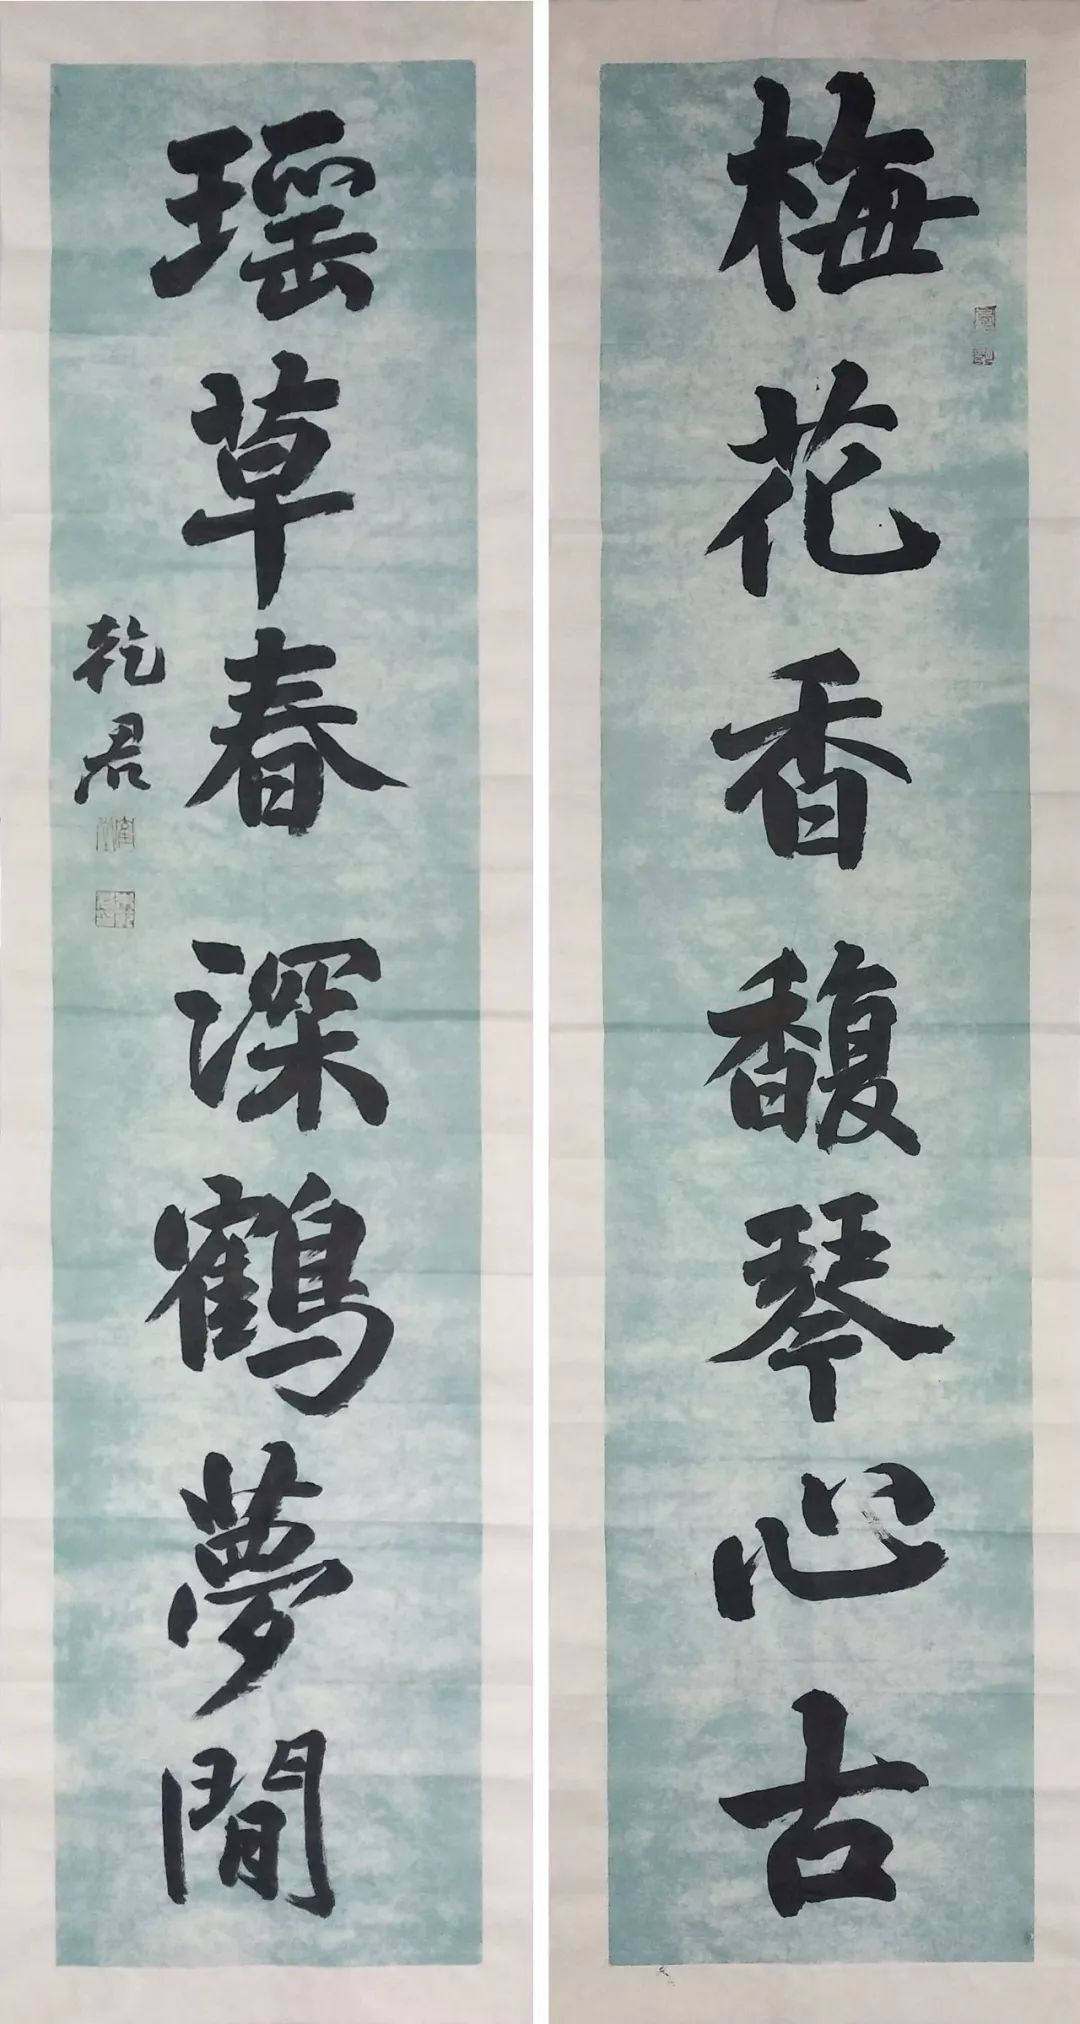 梅花香馥琴心古
瑶草春深鶴夢閒
乾君